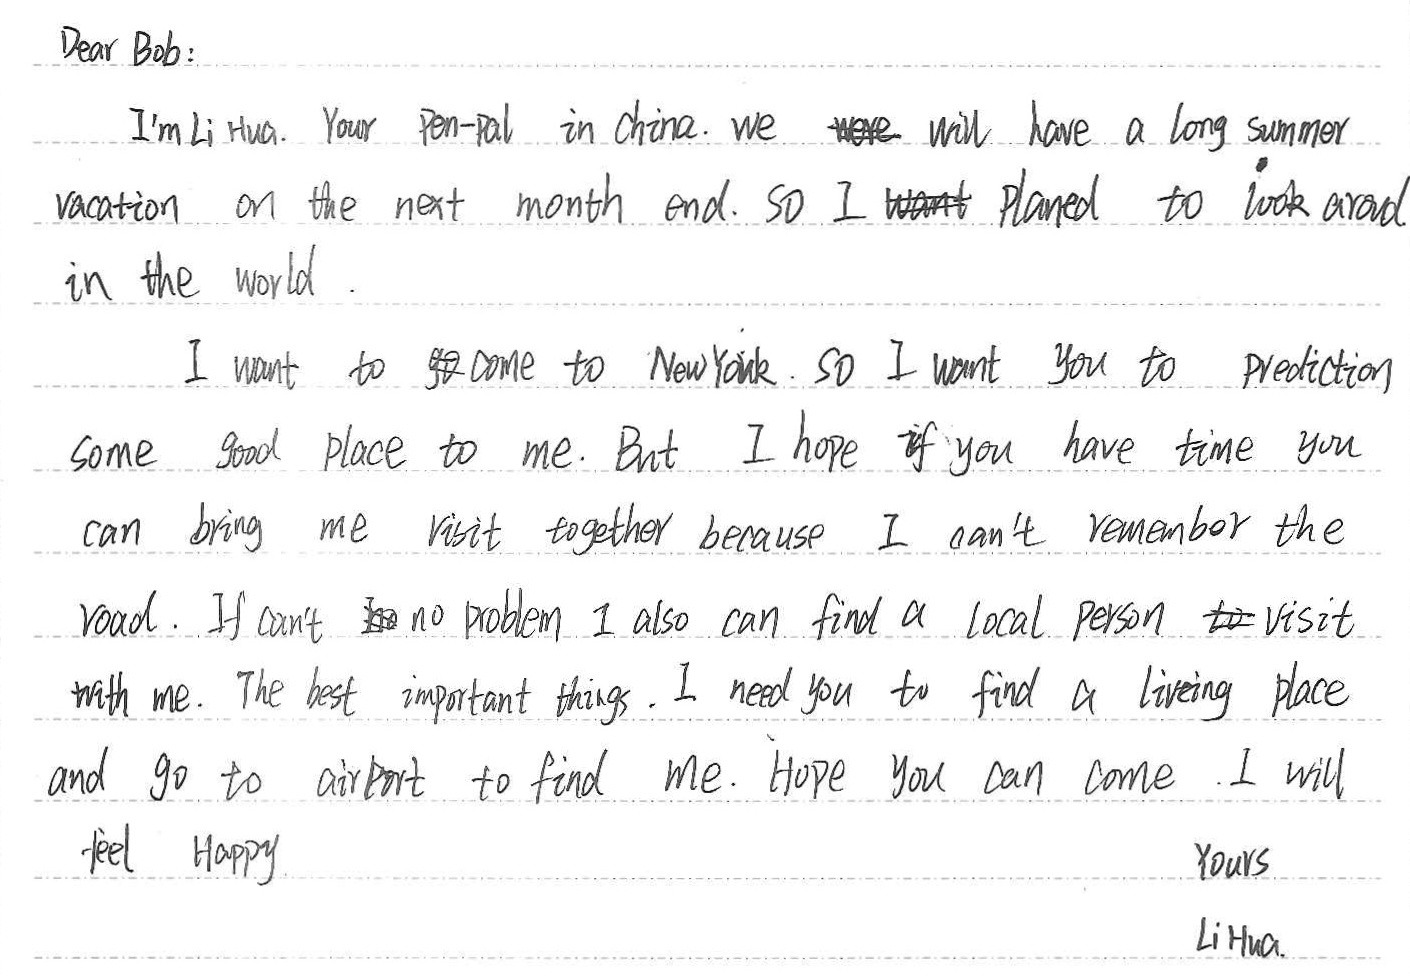 Dear Bob:
I'm Li Hua. Your Pen-pal in China. we will have a long summer
vacation on the next month end. So I planed to look aroud
in the world.
I want to come to New Yourk. So I want you to prediction
some good place to me. But I hope if you have time you
can bring me visit together because I can't remember the
road. If can't no problem I also can find a local person visit
with me. The best important things. I need you to find a liveing place
and go to airport to find me. Hope you can come. I will
feel Happy
Yours
Li Hua.